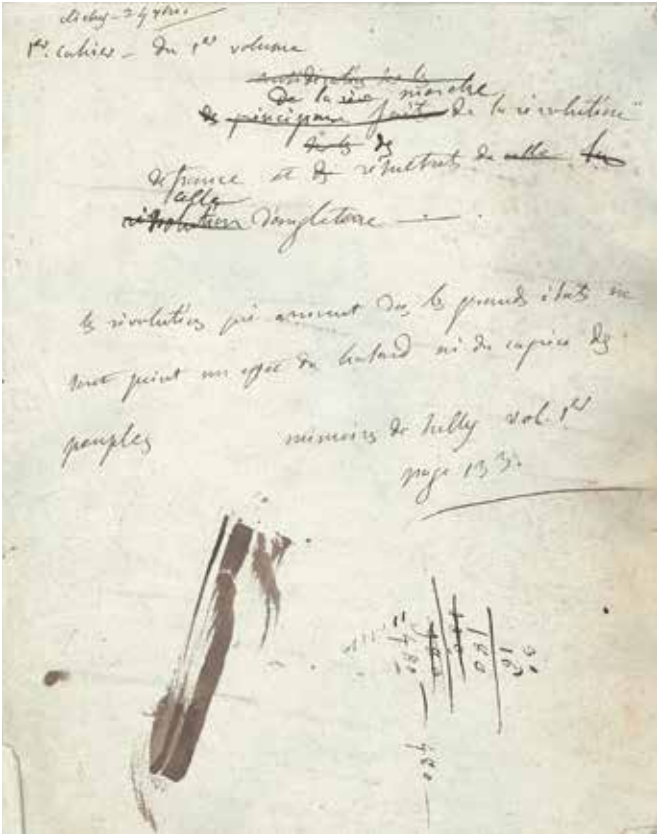 1er. cahier - du 1er volume
de la marche
des principaux faits de la révolution
de france et des résultats de celle
celle
révolution d'angleterre
les révolutions qui arrivent dans les grands états ne
sont point un effet du hasard ni du caprice des
peuples mémoires de Sully vol. 1er
page 133.
30
16
180
480
480